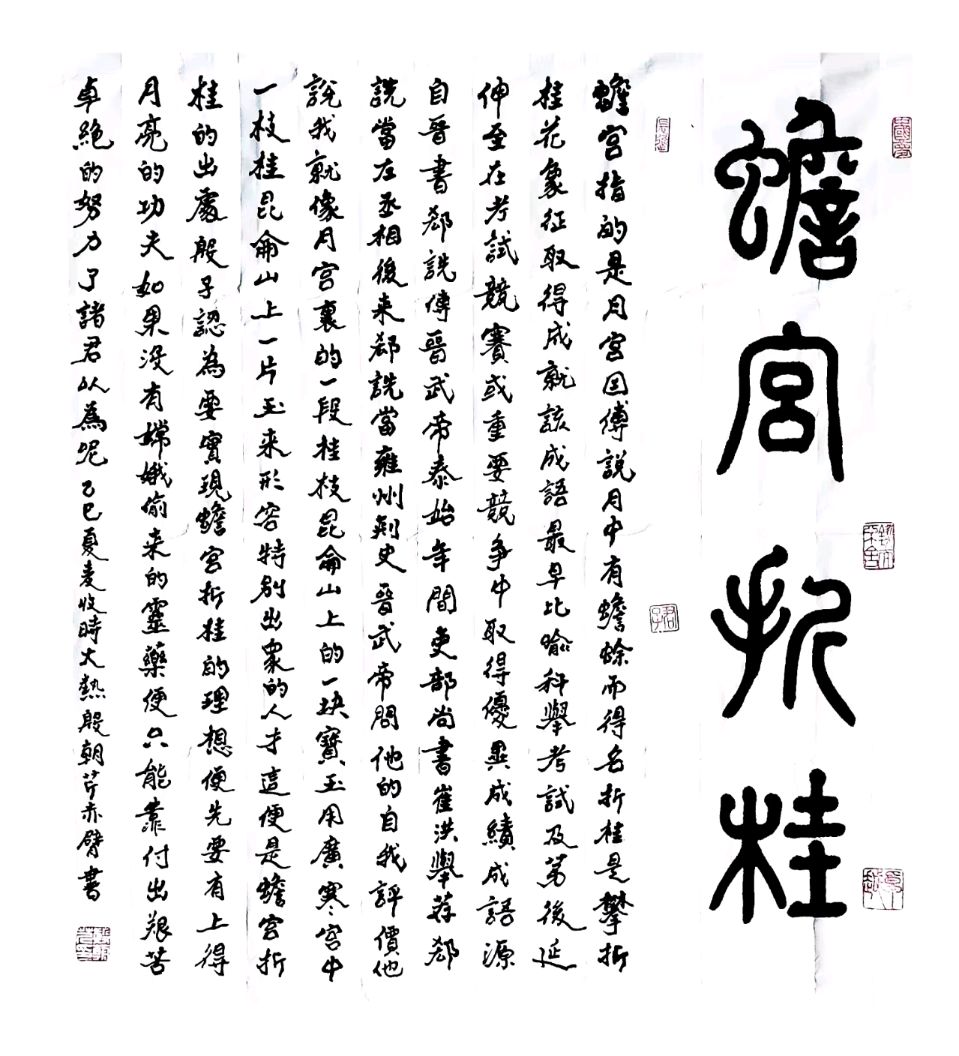 蟾宮折桂
蟾宮指的是月宮因傳説月中有蟾蜍而得名折桂是攀折
桂花象征取得成就該成語最早比喻科舉考試及第後延
伸至在考試競賽或重要競争中取得優異成績成語源
自晉書郄詵傳晉武帝泰始年間吏部尚書崔洪舉荐郄
詵當左丞相後来郄詵當雍州刺史晉武帝問他的自我評價他
說我就像月宮裏的一段桂枝昆侖山上的一块寶玉用廣寒宮中
一枝桂昆侖山上一片玉来形容特别出衆的人才這便是蟾宮折
桂的出處殷子認為要實現蟾宮折桂的理想便先要有上得
月亮的功夫如果没有嫦娥偷来的靈藥便只能靠付出艰苦
卓絶的努力了諸君以為呢乙巳夏麦收時大熱殷朝芹赤臂書